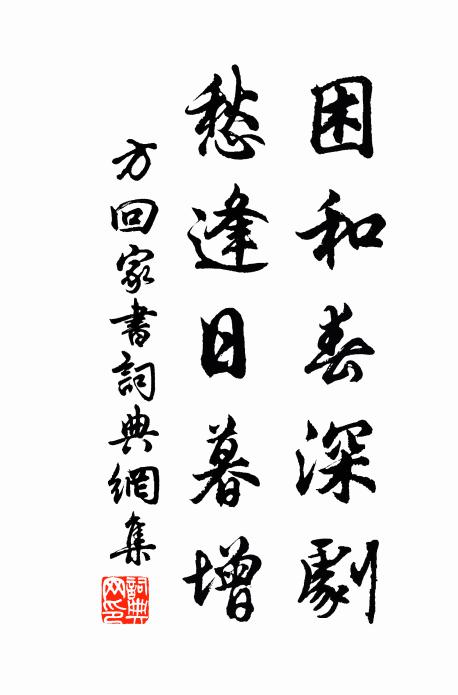 困和春深劇
愁逢日暮增
方回家書詞典網集
詞典網印